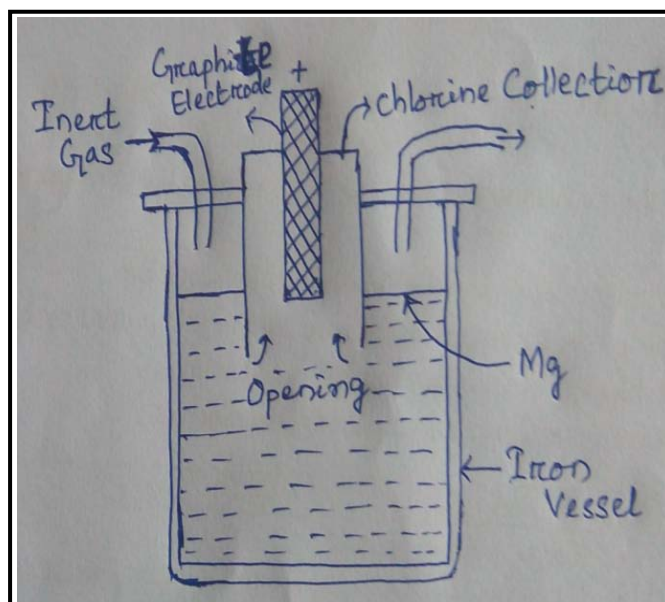 Graphite
Electrode
+
Chlorine Collection
Inert
Gas
Opening
Mg
Iron
Vessel